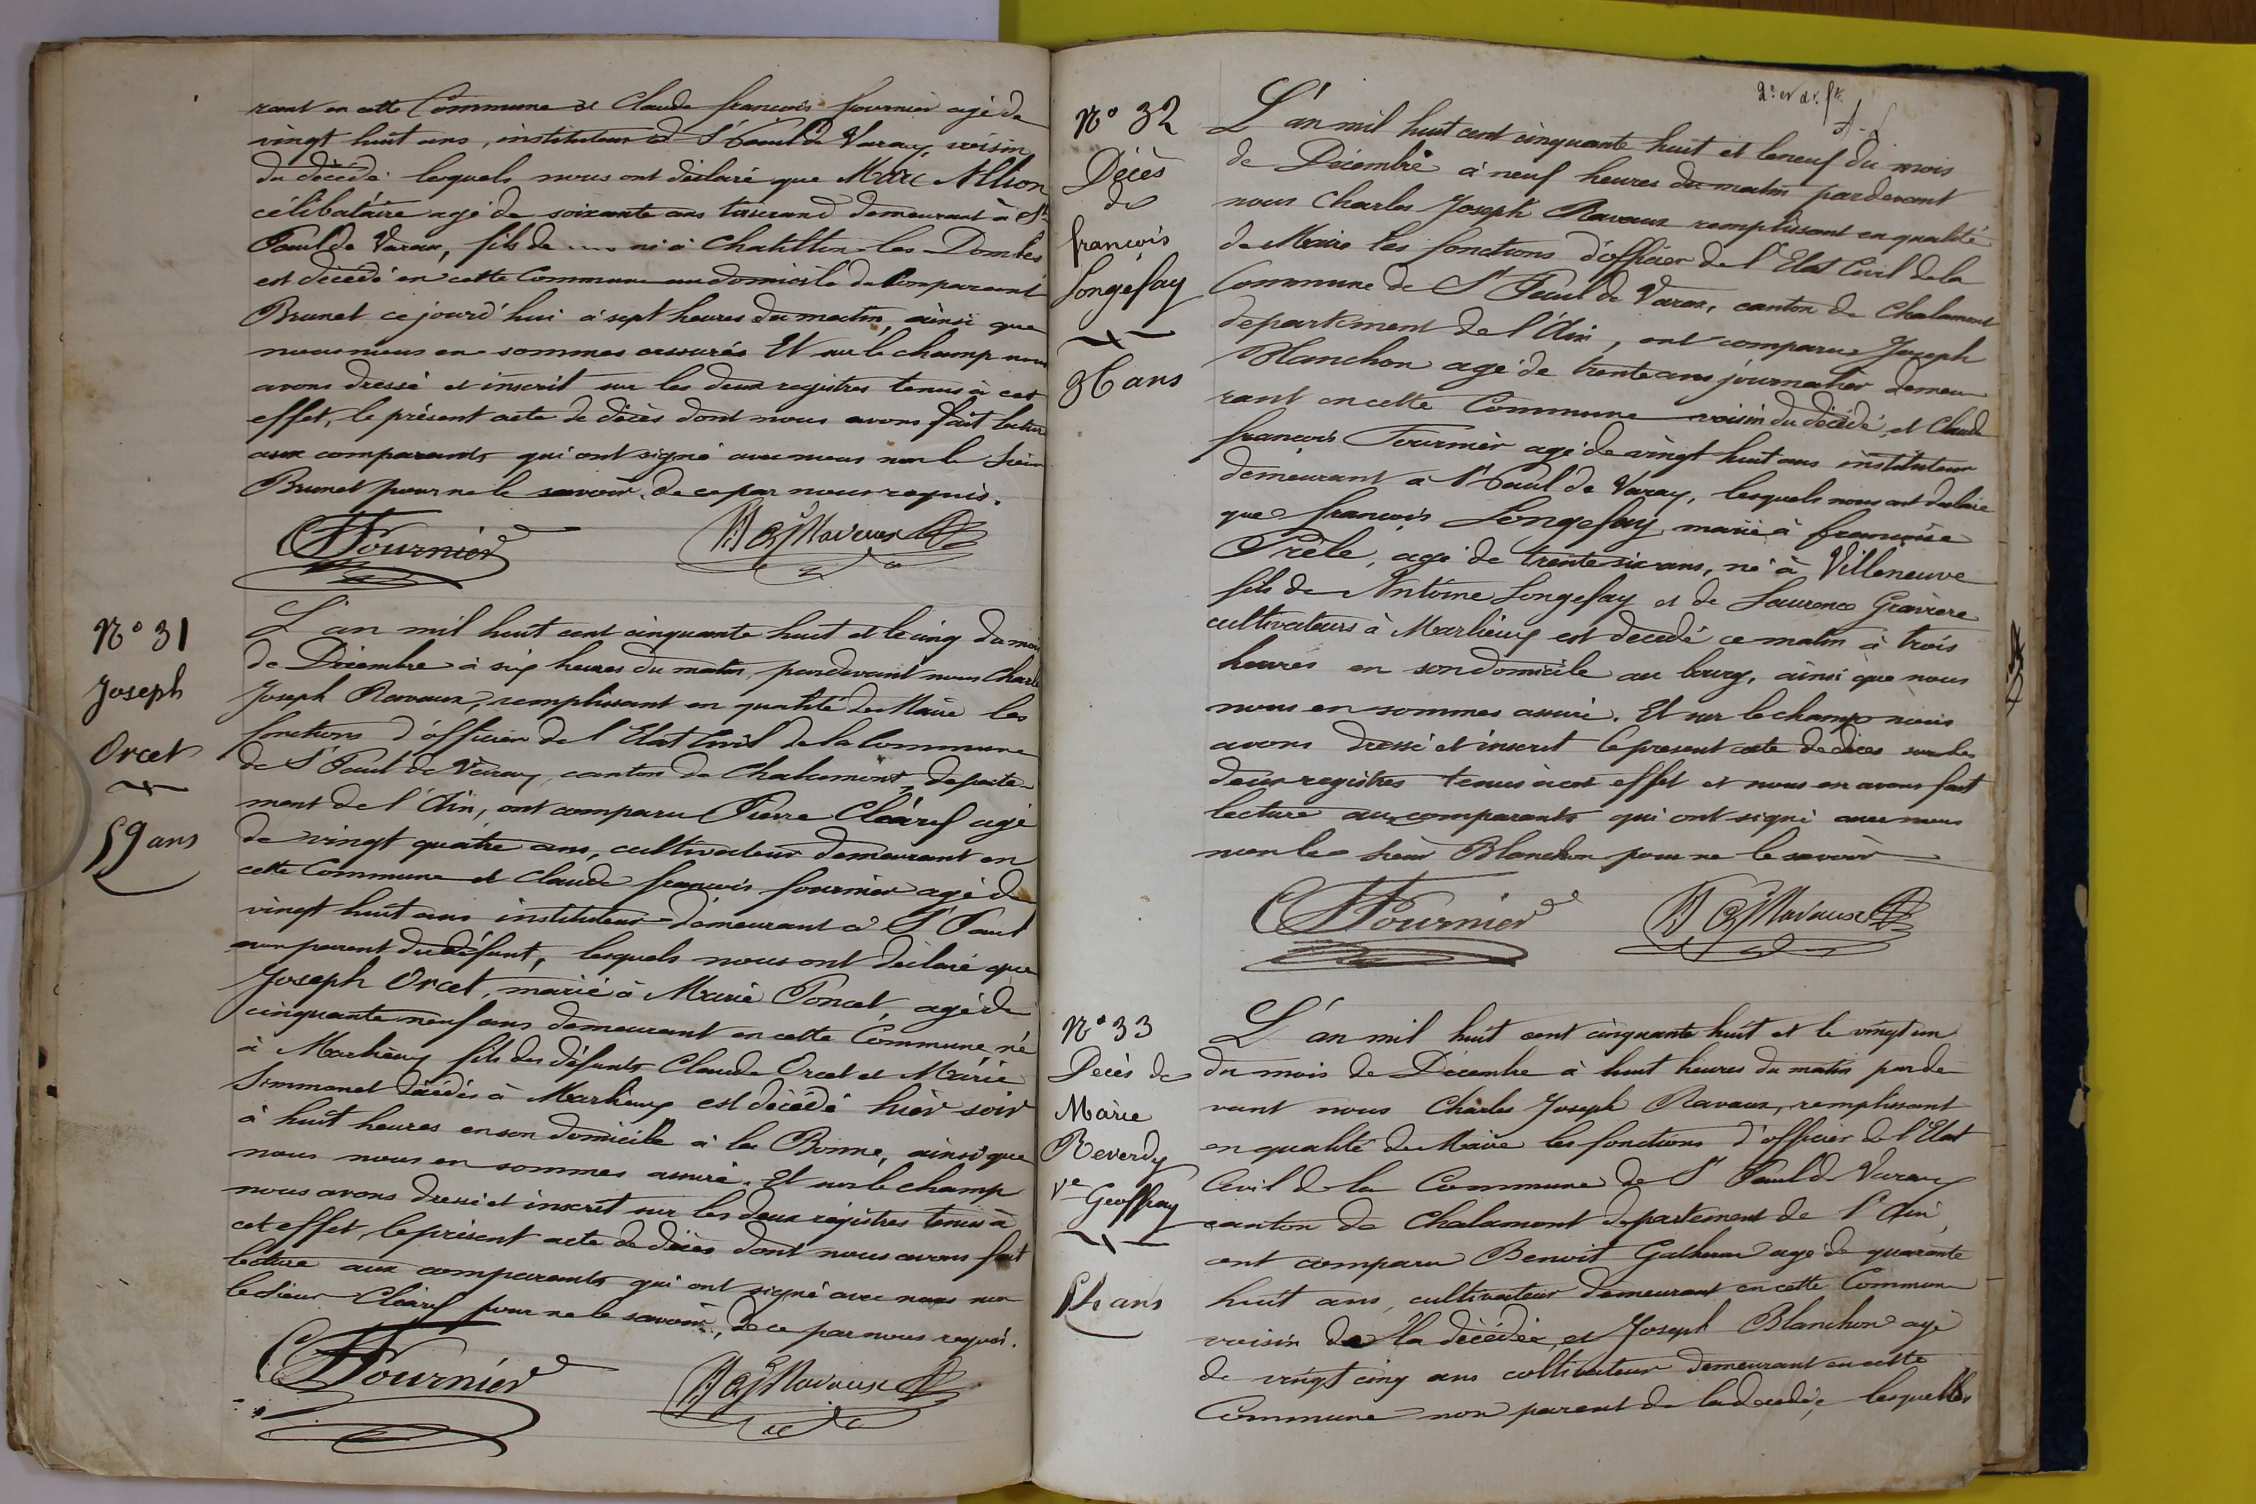 rant en cette Commune et Claude françois fournier agé de
vingt huit ans, instituteur à St Paul de Varax, voisin
du décédé lesquels nous ont déclaré que Marc
célibataire agé de soixante ans tisserand demeurant à St
Paul de Varax, fils de .... né à Chatillon les Dombes
est décédé en cette Commune au domicile du Comparant
Brunet ce jourd'hui à sept heures du matin, ainsi que
nous nous en sommes assurés Et sur le champ nous
avons dressé et inscrit sur les deux registres tenus à cet
effet, le présent acte de décès dont nous avons fait lecture
aux comparants qui ont signé avec nous non le Sieur
Brunet pour ne le savoir, de ce par nous requis.
Fournier Ravaux
N° 31
Joseph
Orcet
59 ans
L'an mil huit cent cinquante huit et le cinq du mois
de Décembre à six heures du matin, pardevant nous Charles
Joseph Ravaux, remplissant en qualité de Maire les
fonctions d'officier de l'Etat Civil de la Commune
de St Paul de Varax, canton de Chalamont, départe-
ment de l'Ain, ont comparu Pierre agé
de vingt quatre ans, cultivateur demeurant en
cette Commune et Claude françois fournier agé de
vingt huit ans instituteur demeurant à St Paul
non parent du défunt, lesquels nous ont déclaré que
Joseph Orcet, marié à Marie Poncet, agé de
cinquante neuf ans demeurant en cette Commune, né
à Marlieux fils des défunts Claude Orcet et Marie
Simmonet décédés à Marlieux est décédé hièr soir
à huit heures en son domicile à la Bonne, ainsi que
nous nous en sommes assuré. Et sur le champ
nous avons dressé et inscrit sur les deux régistres tenus à
cet effet, le présent acte de décès dont nous avons fait
lecture aux comparants qui ont signé avec nous non
le Sieur pour ne le savoir, de ce par nous requis.
Fournier Ravaux
N° 32
Décès
de
françois
Longefay
36 ans
L'an mil huit cent cinquante huit et le neuf du mois
de Décembre à neuf heures du matin pardevant
nous Charles Joseph Ravaux remplissant en qualité
de Maire les fonctions d'officier de l'Etat Civil de la
Commune de St Paul de Varax, canton de Chalamont
département de l'Ain, ont comparu Joseph
Blanchon agé de trente ans journalier demeu-
rant en cette Commune voisin du décédé, et Claude
françois Fournier agé de vingt huit ans instituteur
demeurant à St Paul de Varax, lesquels nous ont déclaré
que françois Longefay marié à françoise
Prèle, agé de trente six ans, né à Villeneuve
fils de Antoine Longefay et de Laurence Gravière
cultivateurs à Marlieux est décédé ce matin à trois
heures en son domicile au bourg, ainsi que nous
nous en sommes assuré. Et sur le champ nous
avons dressé et inscrit le présent acte de décès sur les
deux registres tenus à cet effet et nous en avons fait
lecture aux comparants qui ont signé avec nous
non le Sieur Blanchon pour ne le savoir
Fournier Ravaux
N° 33
Decès de
Marie
Reverdy
Ve Geoffray
ans
L'an mil huit cent cinquante huit et le vingt un
du mois de Décembre à huit heures du matin parde-
vant nous Charles Joseph Ravaux, remplissant
en qualité de Maire les fonctions d'officier de l'Etat
Civil de la Commune de St Paul de Varax
canton de Chalamont département de l'Ain,
ont comparu Benoit agé de quarante
huit ans, cultivateur demeurant en cette Commune
voisin de la décédée, et Joseph Blanchon agé
de vingt cinq ans cultivateur demeurant en cette
Commune non parent de la décédée, lesquelles